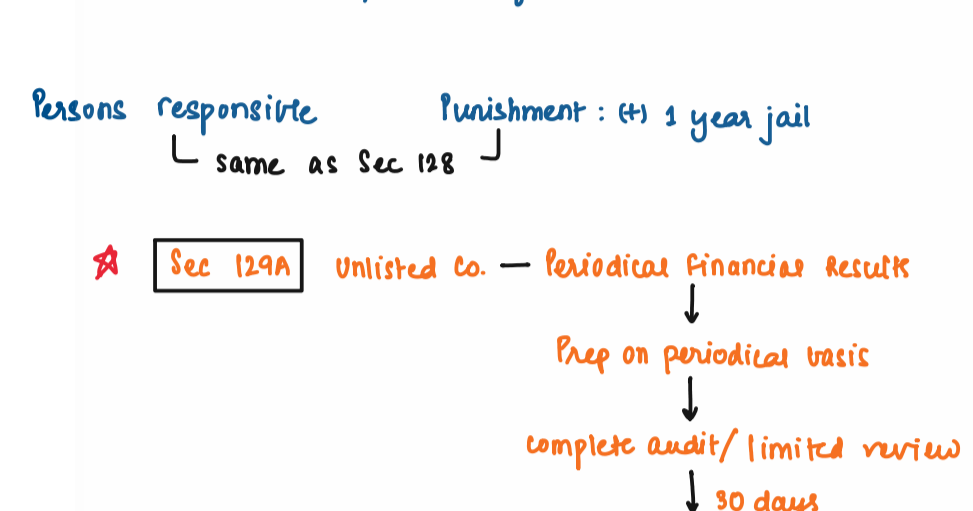 Persons responsible Punishment : (+) 1 year jail
same as Sec 128
Sec 129A Unlisted Co. — Periodical Financial Results
Prep on periodical basis
complete audit/limited review
30 days